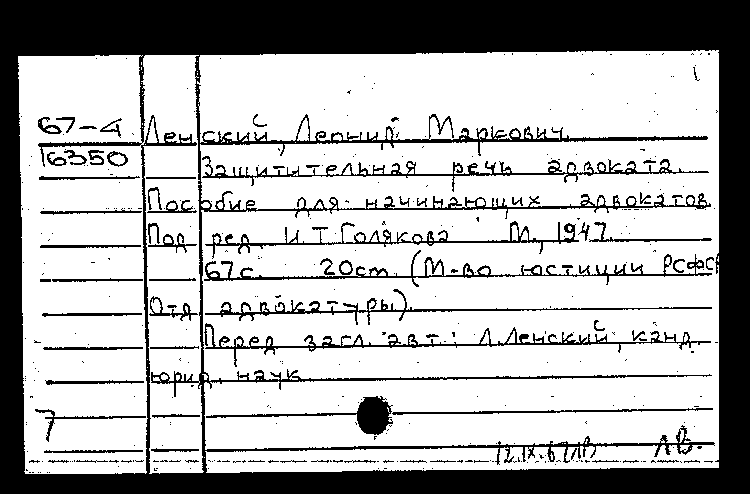 67-4 Ленский, Леонид Маркович.
16350 Защитительная речь адвоката.
Пособие для начинающих адвокатов.
Под ред. И.Т.Голякова М., 1947.
67с. 20см. (М-во юстиции РСФСР
Отд адвокатуры).
Перед загл. авт.: Л.Ленский, канд.
юрид. наук
7
12.IX.67 ЛВ ЛВ.